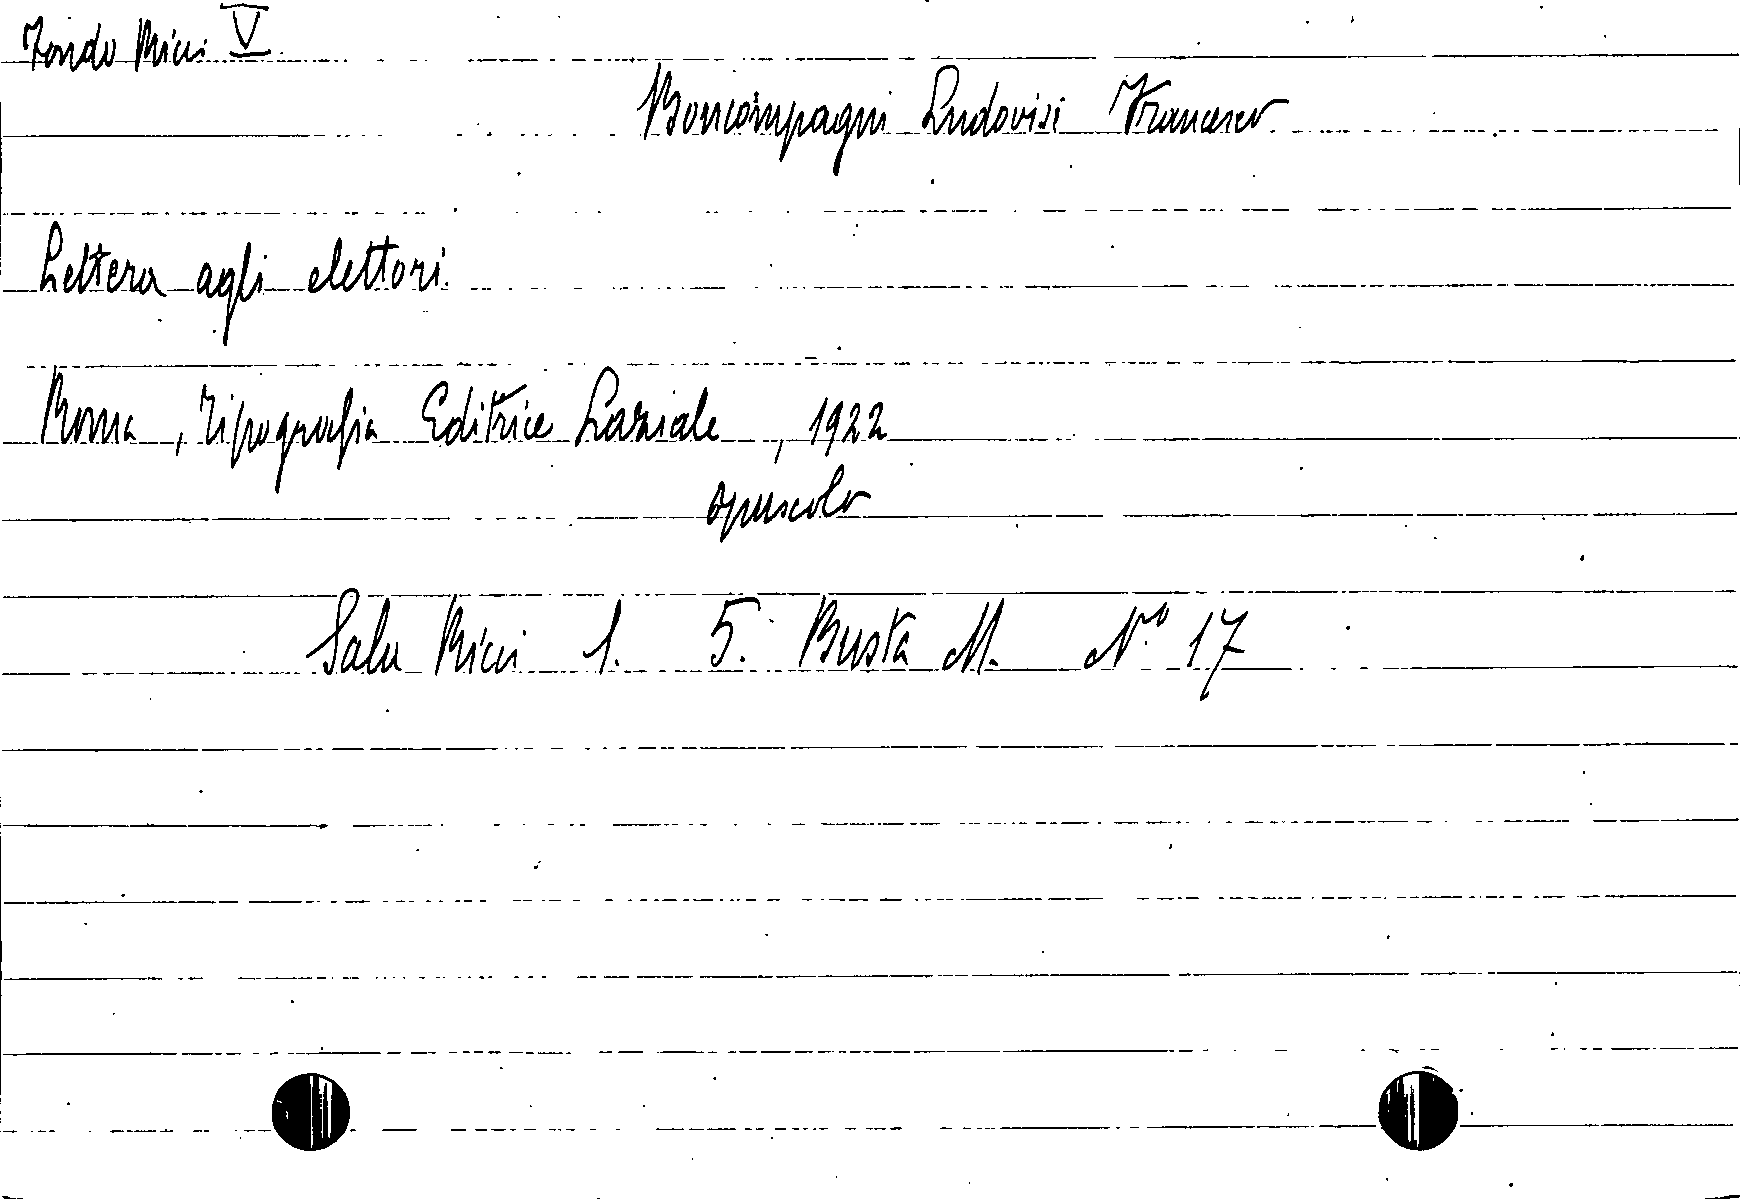 Fondo Ricci V
Boncompagni Ludovisi Francesco
Lettera agli elettori.
Roma, Tipografia Editrice Laziale, 1922
opuscolo
Sala Ricci 1. 5. Busta M. N.º 17